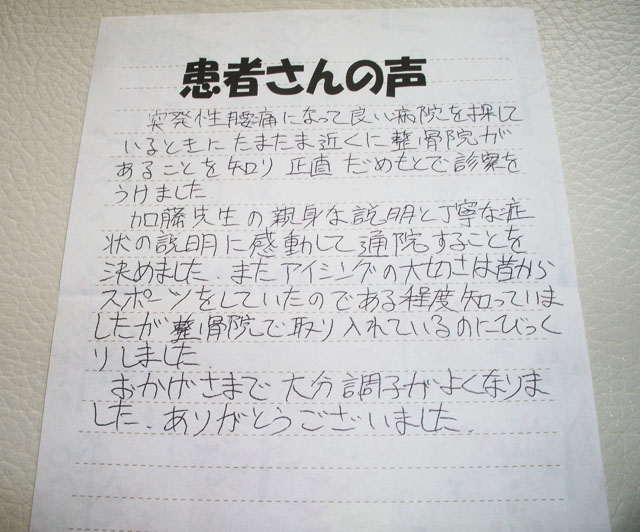 患者さんの声
突発性腰痛になって良い病院を探して
いるときに たまたま近くに整骨院が
あることを知り 正直 だめもとで診察を
うけました.
加藤先生の親身な説明と丁寧な症
状の説明に感動して通院することを
決めました. またアイシングの大切さは昔から
スポーツをしていたのである程度知っていま
したが整骨院で取り入れているのにびっく
りしました.
おかげさまで 大分調子がよくなりま
した. ありがとうございました.